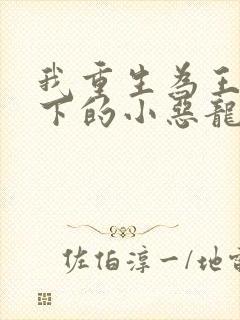 我重生為王
下的小惡龍
佐伯淳一/地